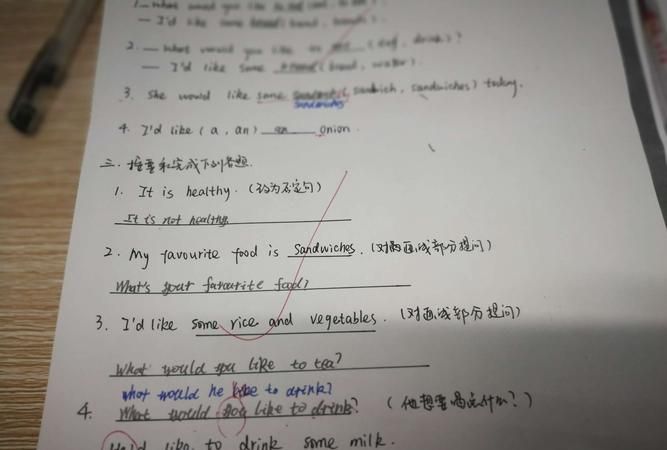 1. — What would you like to
— I'd like some
2. — What would you like to (eat, drink)?
— I'd like some (bread, water).
3. She would like some (sandwich, sandwiches) today.
sandwiches
4. I'd like (a, an) an onion.
三. 按要求完成下列各题.
1. It is healthy. (改为否定句)
It is not healthy.
2. My favourite food is sandwiches. (对画线部分提问)
What's your favourite food?
3. I'd like some rice and vegetables. (对画线部分提问)
What would you like to tea?
what would he like to drink?
4. What would you like to drink? (他想要喝点什么?)
He'd like to drink some milk.